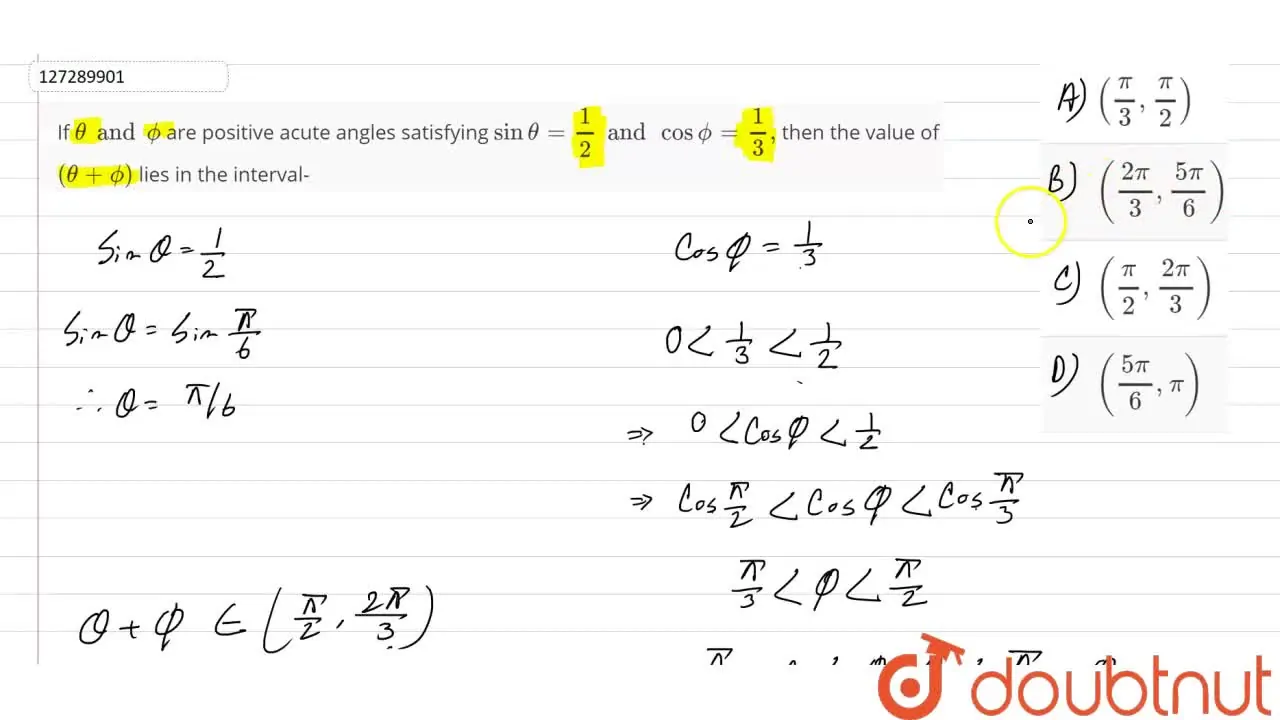 127289901
If θ and ϕ are positive acute angles satisfying sin θ = 1/2 and cos ϕ = 1/3, then the value of
(θ + ϕ) lies in the interval-
A) (π/3, π/2)
B) (2π/3, 5π/6)
C) (π/2, 2π/3)
D) (5π/6, π)
Sin θ = 1/2
Sin θ = Sin π/6
∴ θ = π/6
θ + ϕ ∈ (π/2, 2π/3)
Cos ϕ = 1/3
0 < 1/3 < 1/2
⇒ 0 < Cos ϕ < 1/2
⇒ Cos π/2 < Cos ϕ < Cos π/3
π/3 < ϕ < π/2
doubtnut